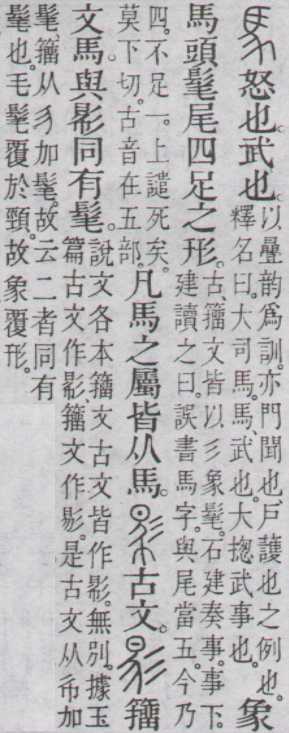 怒也。武也。
以疊韵爲訓。亦門聞也、戶護也之例也。
釋名曰。大司馬。馬、武也。大揔武事也。
象
馬頭髦尾四足之形。
古、籒文皆以彡象髦。石建奏事。事下。
建讀之曰。誤書馬字。與尾當五。今乃
四。不足一。上譴死矣。
莫下切。古音在五部。
凡馬之屬皆从馬。
古文。
籒
文馬與𢒠同有髦。
說文各本籒文古文皆作𢒠。無別。據玉
篇古文作𢒠、籒文作𢒗。是古文从加
髦、籒从彡加髦。故云二者同有
髦也。毛髦覆於頸。故象覆形。